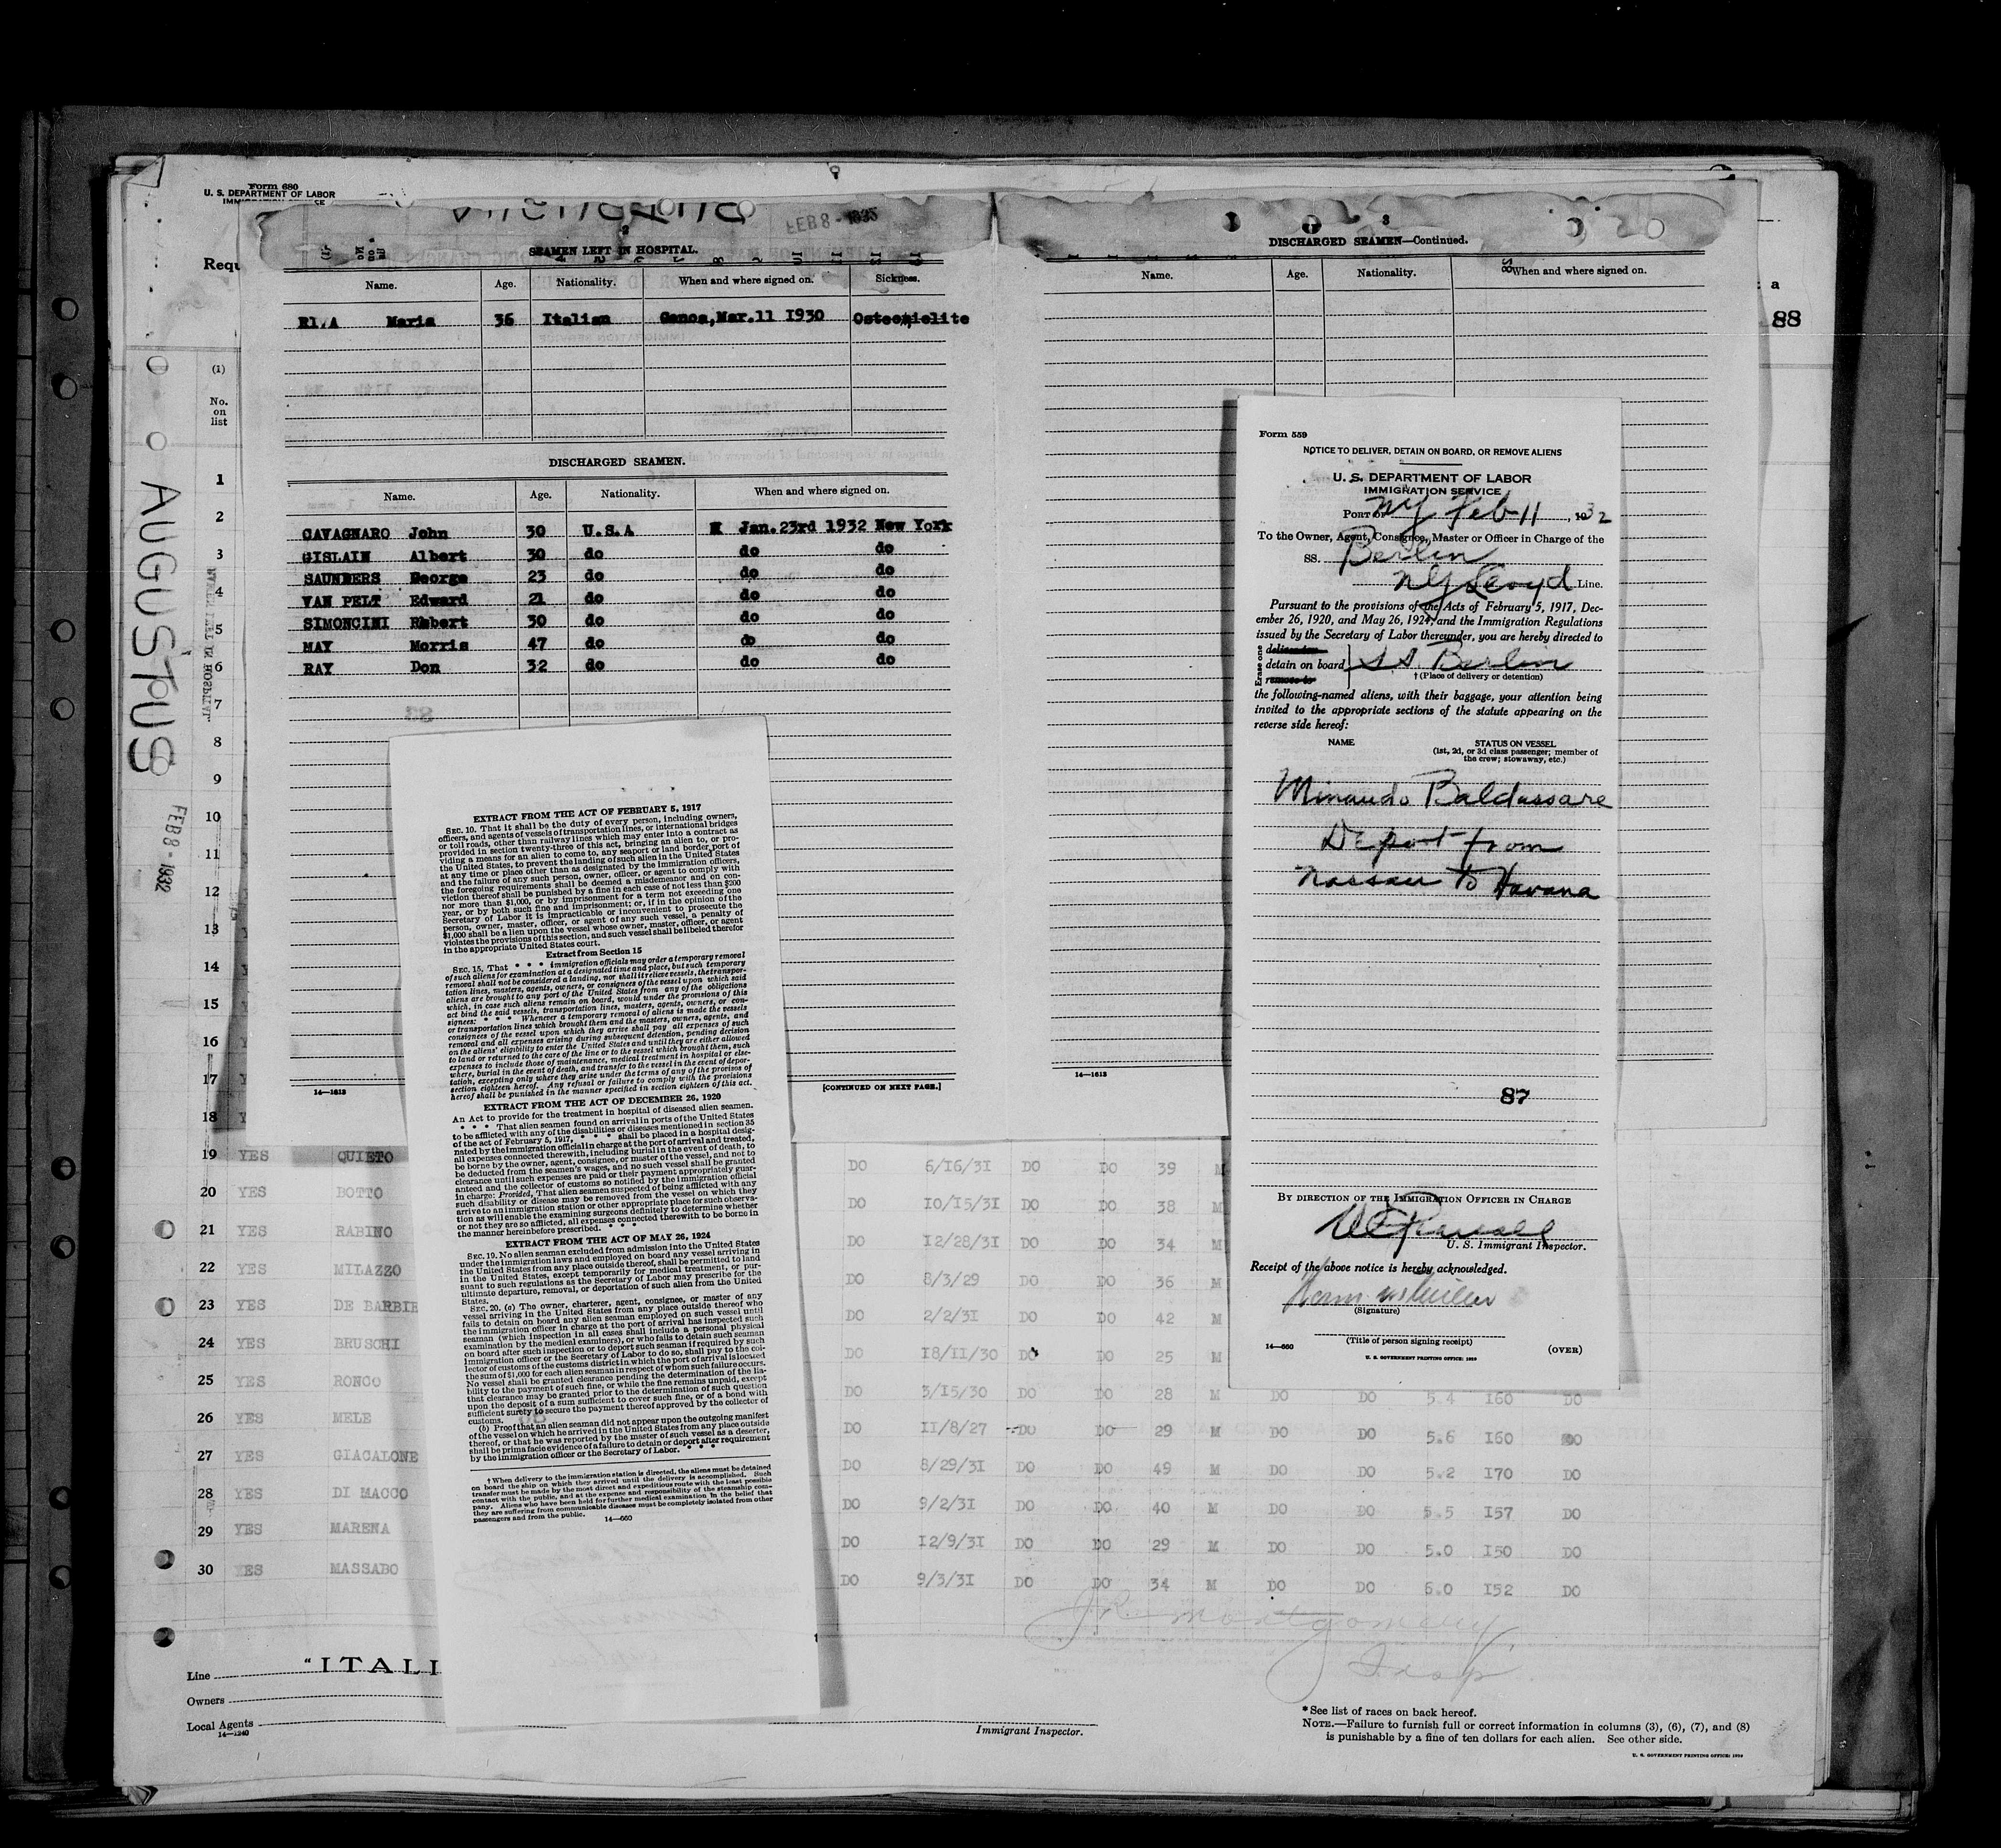 Form 680
U. S. DEPARTMENT OF LABOR
Requ
(1)
No.
on
list
1
2
3
4
5
6
7
8
9
10
11
12
13
14
15
16
17
18
AUGUSTUS
FEB 8 - 1932
FEB 8 - 1932
2
SEAMEN LEFT IN HOSPITAL.
Name. Age. Nationality. When and where signed on. Sickness.
Maria 36 Italian Genoa, Mar. 11 1930
DISCHARGED SEAMEN.
Name. Age. Nationality. When and where signed on.
CAVAGNARO John 30 U.S.A Jan. 23rd 1932 New York
GISLAIN Albert 30 do do do
SAUNDERS George 23 do do do
VAN PELT Edward 21 do do do
SIMONCINI Robert 30 do do do
MAY Morris 47 do do do
RAY Don 32 do do do
14—1613
[CONTINUED ON NEXT PAGE.]
3
DISCHARGED SEAMEN—Continued.
Name. Age. Nationality. When and where signed on.
14—1613
a
88
EXTRACT FROM THE ACT OF FEBRUARY 5, 1917
SEC. 10. That it shall be the duty of every person, including owners,
officers, and agents of vessels of transportation lines, or international bridges
or toll roads, other than railway lines which may enter into a contract as
provided in section twenty-three of this act, bringing an alien to, or pro-
viding a means for an alien to come to, any seaport or land border port of
the United States, to prevent the landing of such alien in the United States
at any time or place other than as designated by the immigration officers,
and the failure of any such person, owner, officer, or agent to comply with
the foregoing requirements shall be deemed a misdemeanor and on con-
viction thereof shall be punished by a fine in each case of not less than $200
nor more than $1,000, or by imprisonment for a term not exceeding one
year, or by both such fine and imprisonment; or, if in the opinion of the
Secretary of Labor it is impracticable or inconvenient to prosecute the
person, owner, master, officer, or agent of any such vessel, a penalty of
$1,000 shall be a lien upon the vessel whose owner, master, officer, or agent
violates the provisions of this section, and such vessel shall be libeled therefor
in the appropriate United States court.
Extract from Section 15
SEC. 15. That * * * immigration officials may order a temporary removal
of such aliens for examination at a designated time and place, but such temporary
removal shall not be considered a landing, nor shall it relieve vessels, the transpor-
tation lines, masters, agents, owners, or consignees of the vessel upon which said
aliens are brought to any port of the United States from any of the obligations
which, in case such aliens remain on board, would under the provisions of this
act bind the said vessels, transportation lines, masters, agents, owners, or con-
signees: * * * Whenever a temporary removal of aliens is made the vessels
or transportation lines which brought them and the masters, owners, agents, and
consignees of the vessel upon which they arrive shall pay all expenses of such
removal and all expenses arising during subsequent detention, pending decision
on the aliens' eligibility to enter the United States and until they are either allowed
to land or returned to the care of the line or to the vessel which brought them, such
expenses to include those of maintenance, medical treatment in hospital or else-
where, burial in the event of death, and transfer to the vessel in the event of depor-
tation, excepting only where they arise under the terms of any of the provisos of
section eighteen hereof. Any refusal or failure to comply with the provisions
hereof shall be punished in the manner specified in section eighteen of this act.
EXTRACT FROM THE ACT OF DECEMBER 26, 1920
An Act to provide for the treatment in hospital of diseased alien seamen.
* * * That alien seamen found on arrival in ports of the United States
to be afflicted with any of the disabilities or diseases mentioned in section 35
of the act of February 5, 1917, * * * shall be placed in a hospital desig-
nated by the immigration official in charge at the port of arrival and treated,
all expenses connected therewith, including burial in the event of death, to
be borne by the owner, agent, consignee, or master of the vessel, and not to
be deducted from the seamen's wages, and no such vessel shall be granted
clearance until such expenses are paid or their payment appropriately guar-
anteed and the collector of customs so notified by the immigration official
in charge: Provided, That alien seamen suspected of being afflicted with any
such disability or disease may be removed from the vessel on which they
arrive to an immigration station or other appropriate place for such observa-
tion as will enable the examining surgeons definitely to determine whether
or not they are so afflicted, all expenses connected therewith to be borne in
the manner hereinbefore prescribed. * * *
EXTRACT FROM THE ACT OF MAY 26, 1924
SEC. 19. No alien seaman excluded from admission into the United States
under the immigration laws and employed on board any vessel arriving in
the United States from any place outside thereof, shall be permitted to land
in the United States, except temporarily for medical treatment, or pur-
suant to such regulations as the Secretary of Labor may prescribe for the
ultimate departure, removal, or deportation of such alien from the United
States.
SEC. 20. (a) The owner, charterer, agent, consignee, or master of any
vessel arriving in the United States from any place outside thereof who
fails to detain on board any alien seaman employed on such vessel until
the immigration officer in charge at the port of arrival has inspected such
seaman (which inspection in all cases shall include a personal physical
examination by the medical examiners), or who fails to detain such seaman
on board after such inspection or to deport such seaman if required by such
immigration officer or the Secretary of Labor to do so, shall pay to the col-
lector of customs of the customs district in which the port of arrival is located
the sum of $1,000 for each alien seaman in respect of whom such failure occurs.
No vessel shall be granted clearance pending the determination of the lia-
bility to the payment of such fine, or while the fine remains unpaid, except
that clearance may be granted prior to the determination of such question
upon the deposit of a sum sufficient to cover such fine, or of a bond with
sufficient surety to secure the payment thereof approved by the collector of
customs.
(b) Proof that an alien seaman did not appear upon the outgoing manifest
of the vessel on which he arrived in the United States from any place outside
thereof, or that he was reported by the master of such vessel as a deserter,
shall be prima facie evidence of a failure to detain or deport after requirement
by the immigration officer or the Secretary of Labor. * * *
† When delivery to the immigration station is directed, the aliens must be detained
on board the ship on which they arrived until the delivery is accomplished. Such
transfer must be made by the most direct and expeditious route with the least possible
contact with the public, and at the expense and responsibility of the steamship com-
pany. Aliens who have been held for further medical examination in the belief that
they are suffering from communicable diseases must be completely isolated from other
passengers and from the public.
14—660
Form 559
NOTICE TO DELIVER, DETAIN ON BOARD, OR REMOVE ALIENS
U. S. DEPARTMENT OF LABOR
IMMIGRATION SERVICE
PORT OF NY Feb 11, 1932
To the Owner, Agent, Consignee, Master or Officer in Charge of the
SS. Berlin
N G Lloyd Line.
Pursuant to the provisions of the Acts of February 5, 1917, Dec-
ember 26, 1920, and May 26, 1924, and the Immigration Regulations
issued by the Secretary of Labor thereunder, you are hereby directed to
Erase one
detain on board S.S. Berlin
remove to
† (Place of delivery or detention)
the following-named aliens, with their baggage, your attention being
invited to the appropriate sections of the statute appearing on the
reverse side hereof:
NAME STATUS ON VESSEL
(1st, 2d, or 3d class passenger; member of
the crew; stowaway, etc.)
Minaudo Baldassare
Deport from
Nassau to Havana
87
BY DIRECTION OF THE IMMIGRATION OFFICER IN CHARGE
U. S. Immigrant Inspector.
Receipt of the above notice is hereby acknowledged.
(Signature)
(Title of person signing receipt)
14—660
U. S. GOVERNMENT PRINTING OFFICE: 1929
(OVER)
19 YES QUIETO DO 6/16/31 DO DO 39 M
20 YES BOTTO DO 10/15/31 DO DO 38 M
21 YES RABINO DO 12/28/31 DO DO 34 M
22 YES MILAZZO DO 8/3/29 DO DO 36 M
23 YES DE BARBIE DO 2/2/31 DO DO 42 M
24 YES BRUSCHI DO 18/11/30 DO DO 25 M
25 YES RONCO DO 3/15/30 DO DO 28 M DO DO 5 4 160 DO
26 YES MELE DO 11/8/27 DO DO 29 M DO DO 5.6 160 DO
27 YES GIACALONE DO 8/29/31 DO DO 49 M DO DO 5.2 170 DO
28 YES DI MACCO DO 9/2/31 DO DO 40 M DO DO 5.5 157 DO
29 YES MARENA DO 12/9/31 DO DO 29 M DO DO 5.0 150 DO
30 YES MASSABO DO 9/3/31 DO DO 34 M DO DO 6.0 152 DO
J.R. Montgomery
Insp.
Line "ITALI
Owners
Local Agents
14—1240
Immigrant Inspector.
*See list of races on back hereof.
NOTE.—Failure to furnish full or correct information in columns (3), (6), (7), and (8)
is punishable by a fine of ten dollars for each alien. See other side.
U. S. GOVERNMENT PRINTING OFFICE: 1929